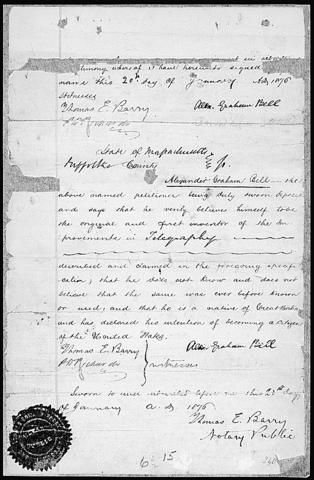 testimony whereof I have hereunto signed
name this 20th day of January A.D. 1876
Witnesses
Thomas E. Barry Alex. Graham Bell
P. D. Richards
State of Massachusetts
Suffolk County ss.
Alexander Graham Bell the
above named petitioner being duly sworn deposes
and says that he verily believes himself to be
the original and first inventor of the Im
provements in Telegraphy
described and claimed in the foregoing specifi
cation; that he does not know and does not
believe that the same was ever before known
or used; and that he is a native of Great Britain
and has declared his intention of becoming a citizen
of the United States.
Thomas E. Barry Alex. Graham Bell
P. D. Richards witnesses
Sworn to and subscribed before me this 20th day
of January A.D. 1876
Thomas E. Barry
Notary Public
6 15